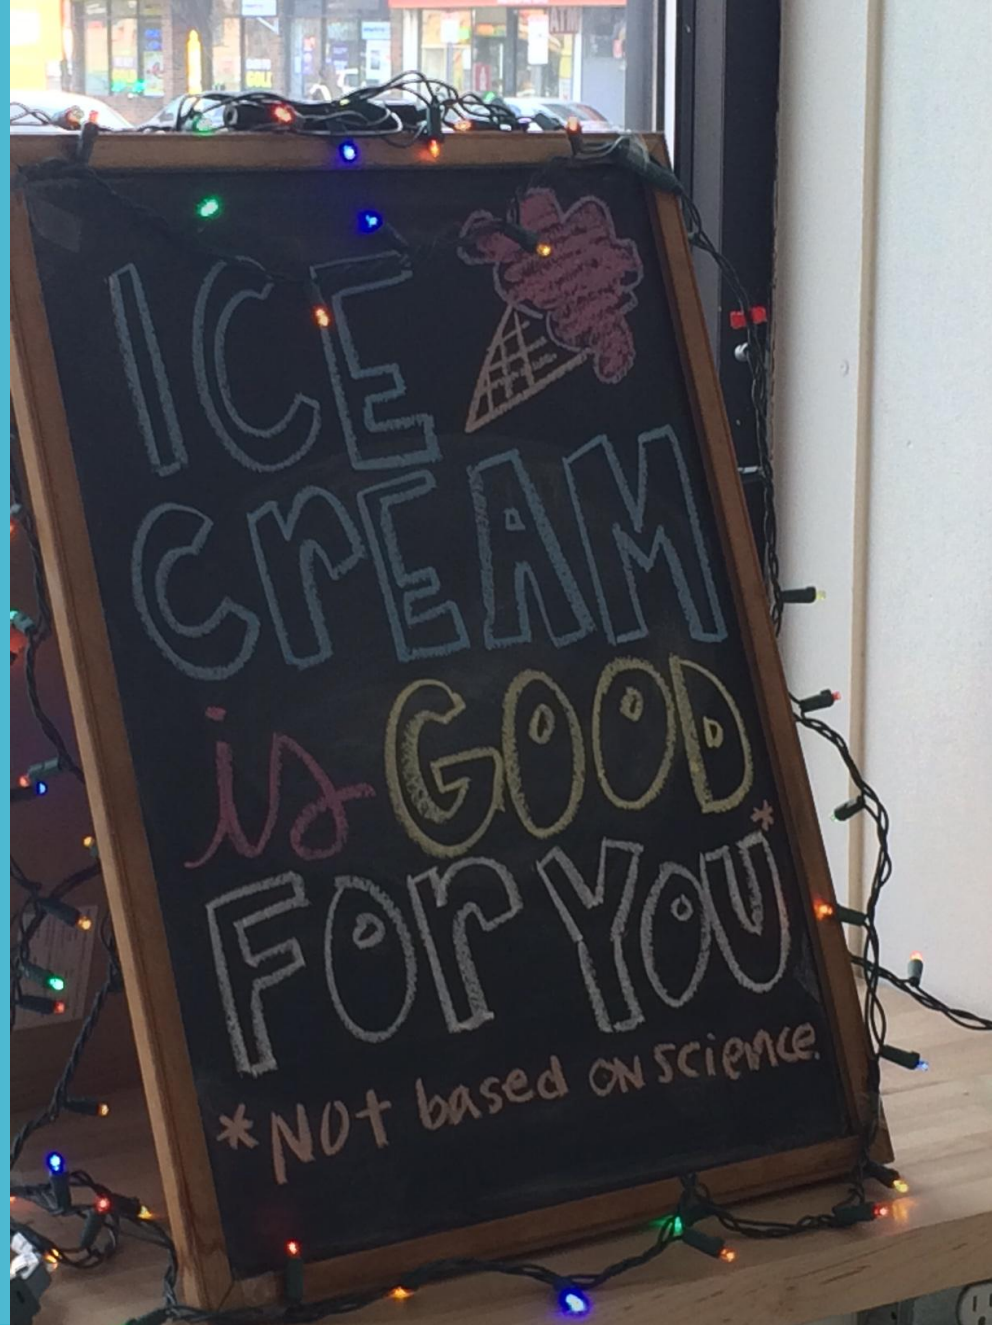 ICE
CrEAM
is GOOD
FOr YOU*
*NOt based ON science.